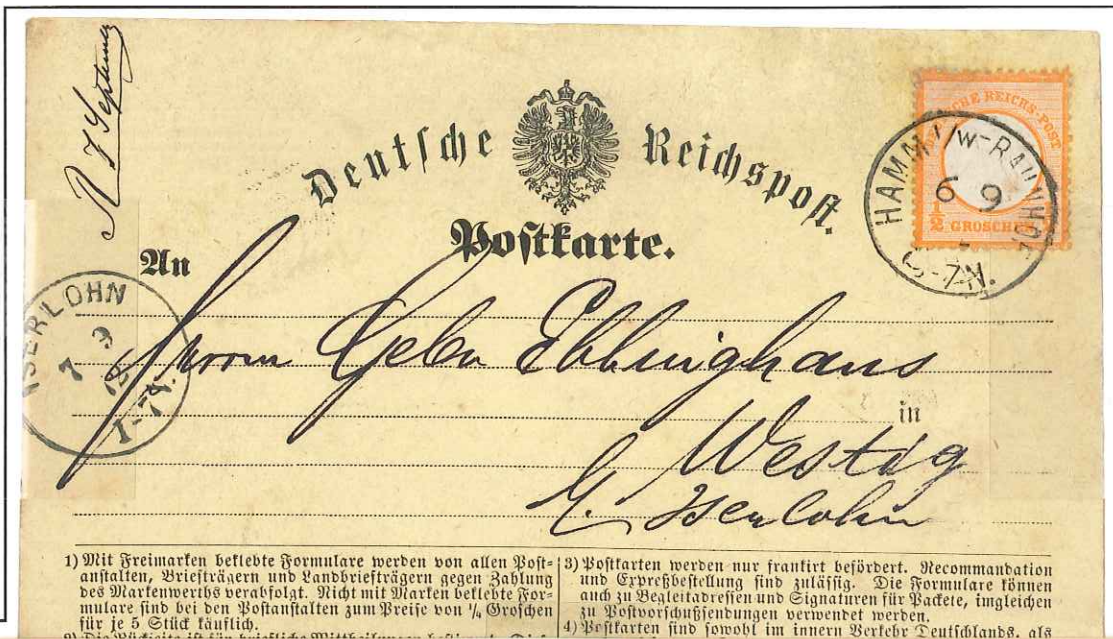 R 7 September
Deutsche Reichspost.
Postkarte.
DEUTSCHE REICHS-POST
½ GROSCHEN
HAMM i/w-BAHNHOF
6 9
6-7N.
An
ISERLOHN
7 9
72
1-7N.
Herrn Gebr Ebbinghaus
in
Westig
b. Iserlohn
1) Mit Freimarken beklebte Formulare werden von allen Post-
anstalten, Briefträgern und Landbriefträgern gegen Zahlung
des Markenwerths verabfolgt. Nicht mit Marken beklebte For-
mulare sind bei den Postanstalten zum Preise von ¼ Groschen
für je 5 Stück käuflich.
2) Die Rückseite ist für briefliche Mittheilungen
3) Postkarten werden nur frankirt befördert. Recommandation
und Expreßbestellung sind zulässig. Die Formulare können
auch zu Begleitadressen und Signaturen für Packete, imgleichen
zu Postvorschußsendungen verwendet werden.
4) Postkarten sind sowohl im innern Verkehr Deutschlands, als